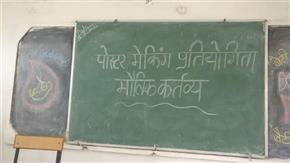 पोस्टर मेकिंग प्रतियोगिता
मौलिक कर्तव्य